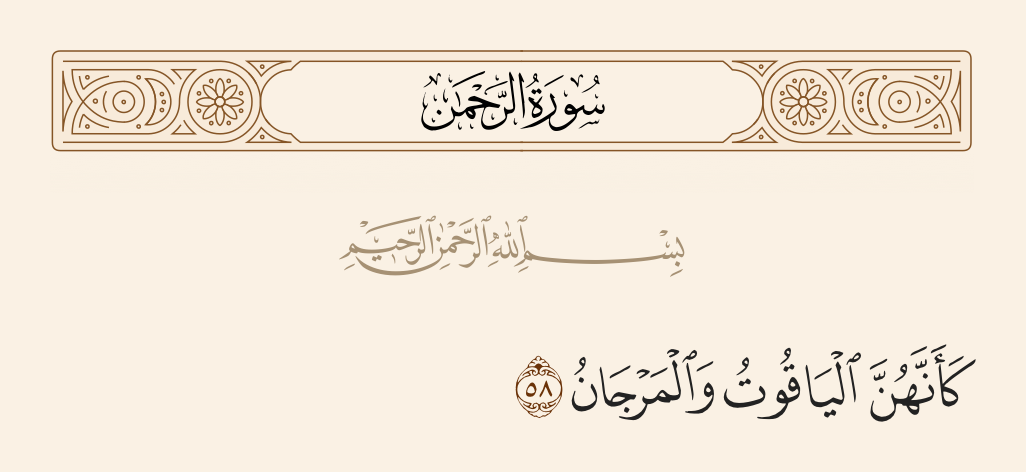 سُورَةُ الرَّحْمَٰن
بِسْمِ ٱللَّهِ ٱلرَّحْمَٰنِ ٱلرَّحِيمِ
كَأَنَّهُنَّ ٱلْيَاقُوتُ وَٱلْمَرْجَانُ ٥٨